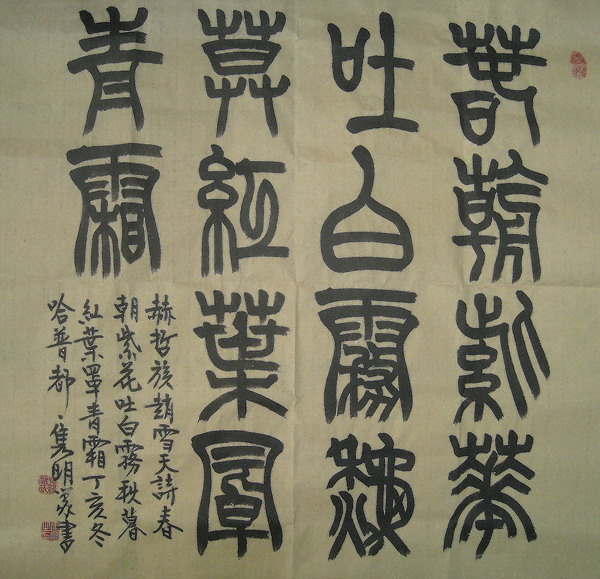 春朝紫華
吐白霧秋
莫紅葉罩
青霜
赫哲族趙雪天詩春
朝紫花吐白霧秋暮
紅葉罩青霜丁亥冬
哈普都·隽明篆書